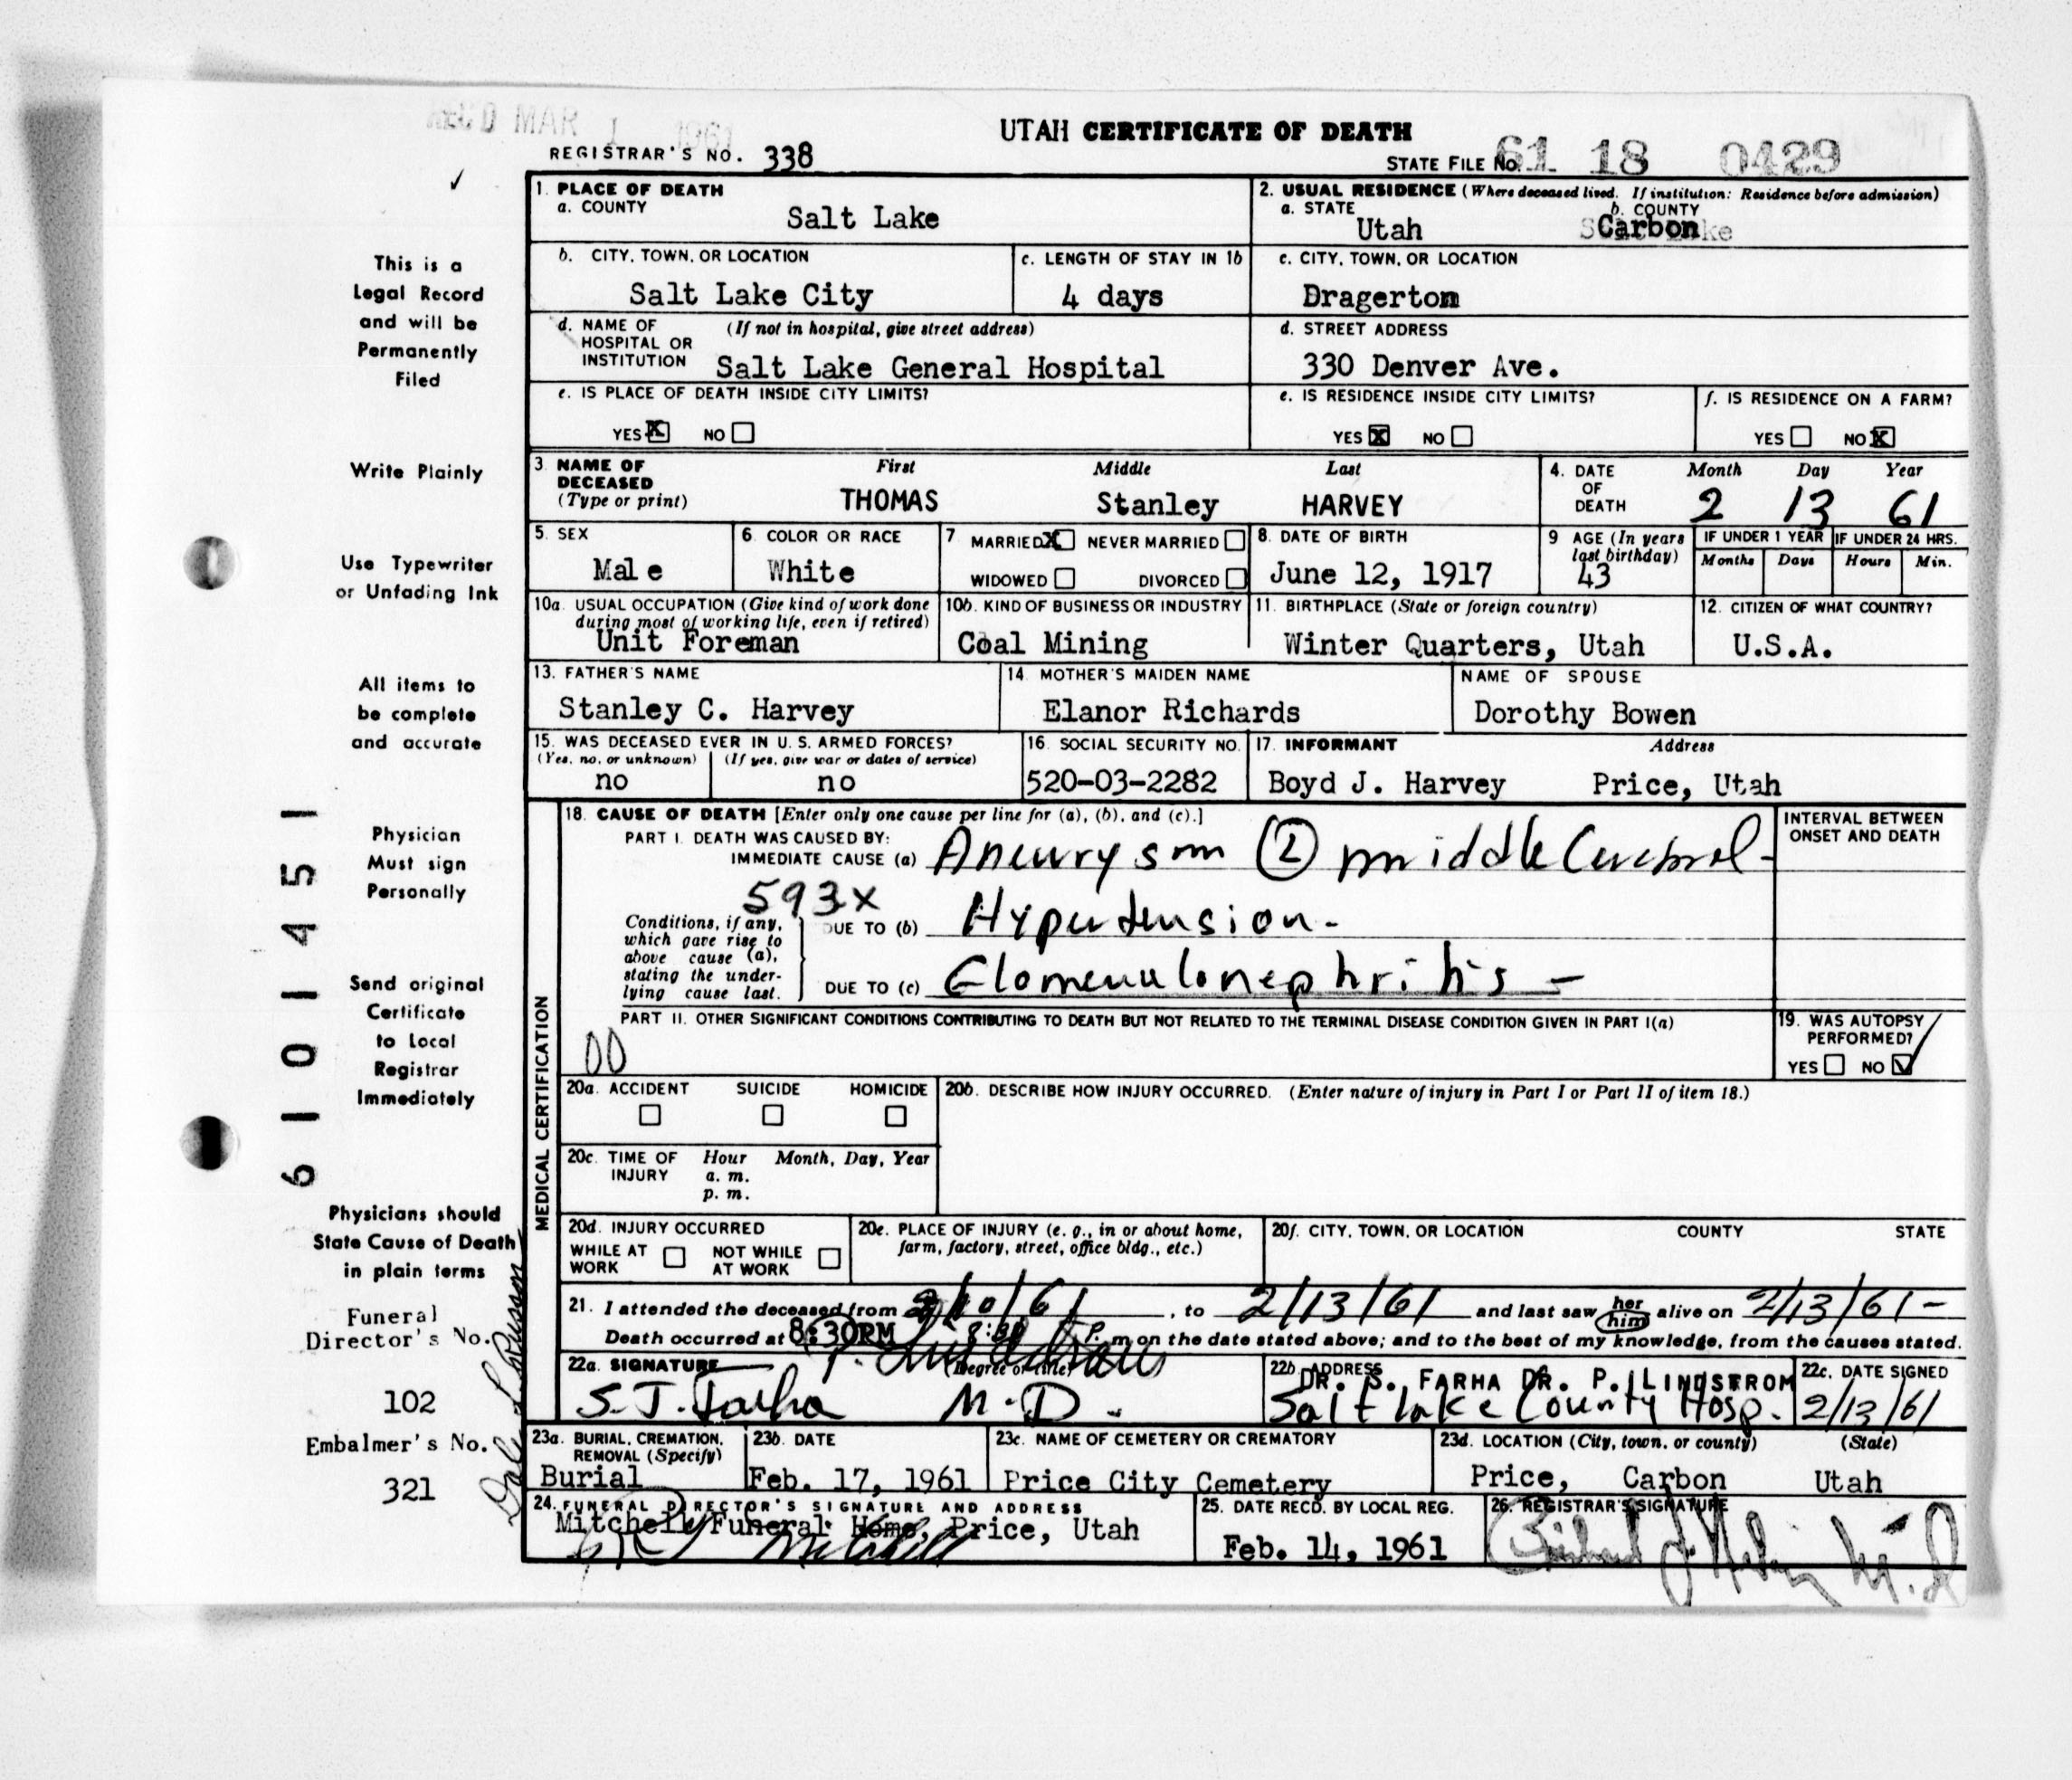 REC'D MAR 1 1961
UTAH CERTIFICATE OF DEATH
REGISTRAR'S NO. 338
STATE FILE No. 61 18 0429
✓
1. PLACE OF DEATH
a. COUNTY
Salt Lake
2. USUAL RESIDENCE (Where deceased lived. If institution: Residence before admission)
a. STATE
Utah
b. COUNTY
Carbon
b. CITY, TOWN, OR LOCATION
Salt Lake City
c. LENGTH OF STAY IN 1b
4 days
c. CITY, TOWN, OR LOCATION
Dragerton
d. NAME OF HOSPITAL OR INSTITUTION (If not in hospital, give street address)
Salt Lake General Hospital
d. STREET ADDRESS
330 Denver Ave.
e. IS PLACE OF DEATH INSIDE CITY LIMITS?
YES X NO
e. IS RESIDENCE INSIDE CITY LIMITS?
YES X NO
f. IS RESIDENCE ON A FARM?
YES NO X
3. NAME OF DECEASED (Type or print)
First Middle Last
THOMAS Stanley HARVEY
4. DATE OF DEATH
Month Day Year
2 13 61
5. SEX
Male
6. COLOR OR RACE
White
7 MARRIED X NEVER MARRIED
WIDOWED DIVORCED
8. DATE OF BIRTH
June 12, 1917
9 AGE (In years last birthday)
43
IF UNDER 1 YEAR
Months Days
IF UNDER 24 HRS.
Hours Min.
10a. USUAL OCCUPATION (Give kind of work done during most of working life, even if retired)
Unit Foreman
10b. KIND OF BUSINESS OR INDUSTRY
Coal Mining
11. BIRTHPLACE (State or foreign country)
Winter Quarters, Utah
12. CITIZEN OF WHAT COUNTRY?
U.S.A.
13. FATHER'S NAME
Stanley C. Harvey
14. MOTHER'S MAIDEN NAME
Elanor Richards
NAME OF SPOUSE
Dorothy Bowen
15. WAS DECEASED EVER IN U.S. ARMED FORCES?
(Yes, no, or unknown) (If yes, give war or dates of service)
no no
16. SOCIAL SECURITY NO.
520-03-2282
17. INFORMANT Address
Boyd J. Harvey Price, Utah
MEDICAL CERTIFICATION
18. CAUSE OF DEATH [Enter only one cause per line for (a), (b), and (c).]
PART I. DEATH WAS CAUSED BY:
IMMEDIATE CAUSE (a) Aneurysm middle Cerebral-
593X
Conditions, if any, which gave rise to above cause (a), stating the underlying cause last.
DUE TO (b) Hypertension-
DUE TO (c) Glomerulonephritis -
INTERVAL BETWEEN ONSET AND DEATH
PART II. OTHER SIGNIFICANT CONDITIONS CONTRIBUTING TO DEATH BUT NOT RELATED TO THE TERMINAL DISEASE CONDITION GIVEN IN PART I(a)
00
19. WAS AUTOPSY PERFORMED?
YES NO ✓
20a. ACCIDENT SUICIDE HOMICIDE
20b. DESCRIBE HOW INJURY OCCURRED. (Enter nature of injury in Part I or Part II of item 18.)
20c. TIME OF INJURY Hour Month, Day, Year
a. m.
p. m.
20d. INJURY OCCURRED
WHILE AT WORK NOT WHILE AT WORK
20e. PLACE OF INJURY (e. g., in or about home, farm, factory, street, office bldg., etc.)
20f. CITY, TOWN, OR LOCATION COUNTY STATE
21. I attended the deceased from 2/10/61, to 2/13/61 and last saw her him alive on 2/13/61-
Death occurred at 8:30PM 8:30 P. m on the date stated above; and to the best of my knowledge, from the causes stated.
22a. SIGNATURE (Degree or title)
S. J. Farha M.D.
22b. ADDRESS
DR. S. FARHA DR. P. LINDSTROM
Salt Lake County Hosp.
22c. DATE SIGNED
2/13/61
23a. BURIAL, CREMATION, REMOVAL (Specify)
Burial
23b. DATE
Feb. 17, 1961
23c. NAME OF CEMETERY OR CREMATORY
Price City Cemetery
23d. LOCATION (City, town, or county) (State)
Price, Carbon Utah
24. FUNERAL DIRECTOR'S SIGNATURE AND ADDRESS
Mitchell Funeral Home, Price, Utah
25. DATE RECD. BY LOCAL REG.
Feb. 14, 1961
26. REGISTRAR'S SIGNATURE
This is a
Legal Record
and will be
Permanently
Filed
Write Plainly
Use Typewriter
or Unfading Ink
All items to
be complete
and accurate
Physician
Must sign
Personally
Send original
Certificate
to Local
Registrar
Immediately
Physicians should
State Cause of Death
in plain terms
Funeral
Director's No.
102
Embalmer's No.
321
6 1 0 1 4 5 1